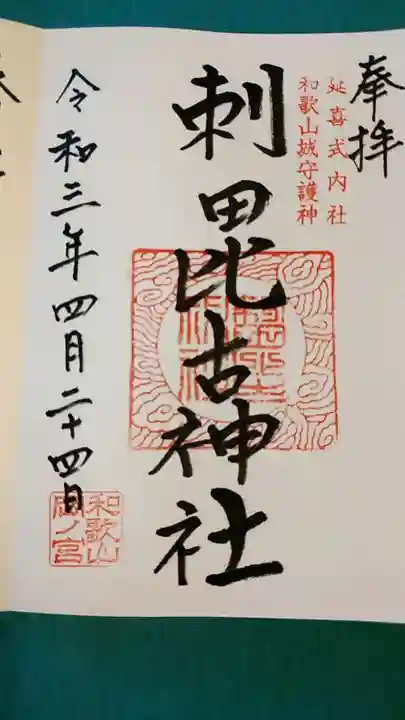 奉拝
延喜式内社
和歌山城守護神
刺田比古神社
令和三年四月二十四日
和歌山
岡ノ宮